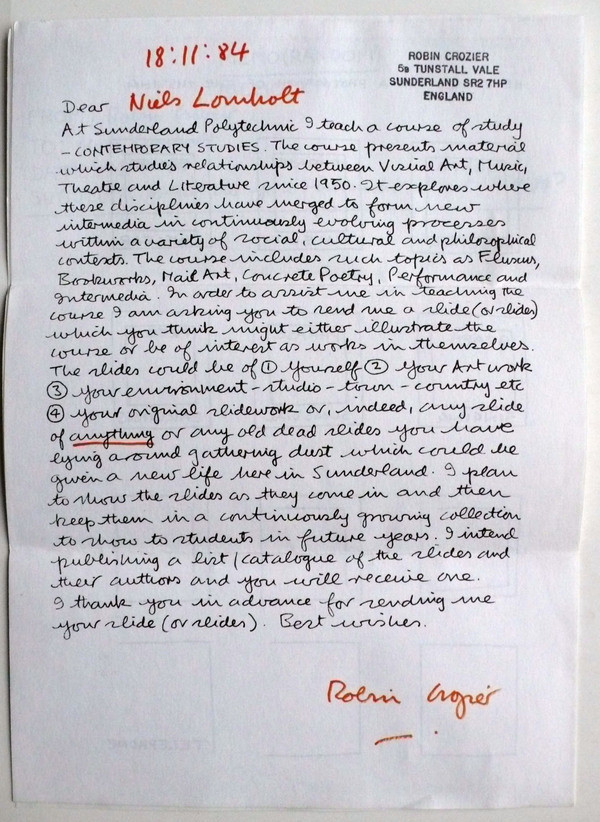 18:11:84
ROBIN CROZIER
5B TUNSTALL VALE
SUNDERLAND SR2 7HP
ENGLAND
Dear Niels Lomholt
At Sunderland Polytechnic I teach a course of study
– CONTEMPORARY STUDIES. The course presents material
which studies relationships between Visual Art, Music,
Theatre and Literature since 1950. It explores where
these disciplines have merged to form new
intermedia in continuously evolving processes
within a variety of social, cultural and philosophical
contexts. The course includes such topics as Fluxus,
Bookworks, Mail Art, Concrete Poetry, Performance and
Intermedia. In order to assist me in teaching the
course I am asking you to send me a slide (or slides)
which you think might either illustrate the
course or be of interest as works in themselves.
The slides could be of ① Yourself ② Your Art work
③ your environment - studio - town - country etc
④ your original slidework or, indeed, any slide
of anything or any old dead slides you have
lying around gathering dust which could be
given a new life here in Sunderland. I plan
to show the slides as they come in and then
keep them in a continuously growing collection
to show to students in future years. I intend
publishing a list / catalogue of the slides and
their authors and you will receive one.
I thank you in advance for sending me
your slide (or slides). Best wishes.
Robin Crozier